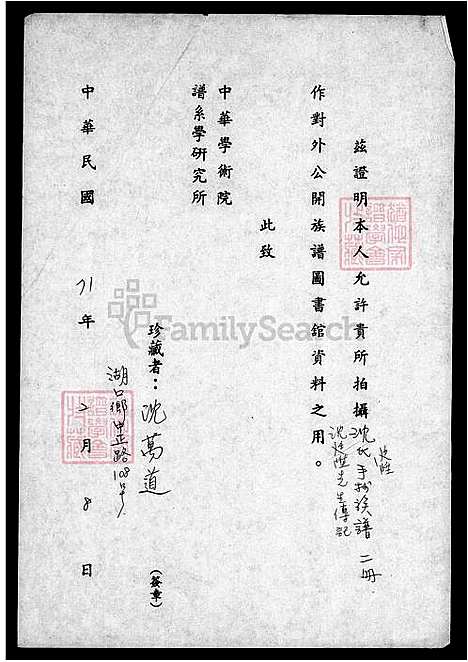 茲證明本人允許貴所拍攝沈氏手抄族譜 二冊
沈廷陞先生傳記
作對外公開族譜圖書館資料之用。
此致
中華學術院
譜系學研究所
珍藏者：沈萬道 (簽章)
湖口鄉中正路108号
中華民國 71年 2月 8日
FamilySearch